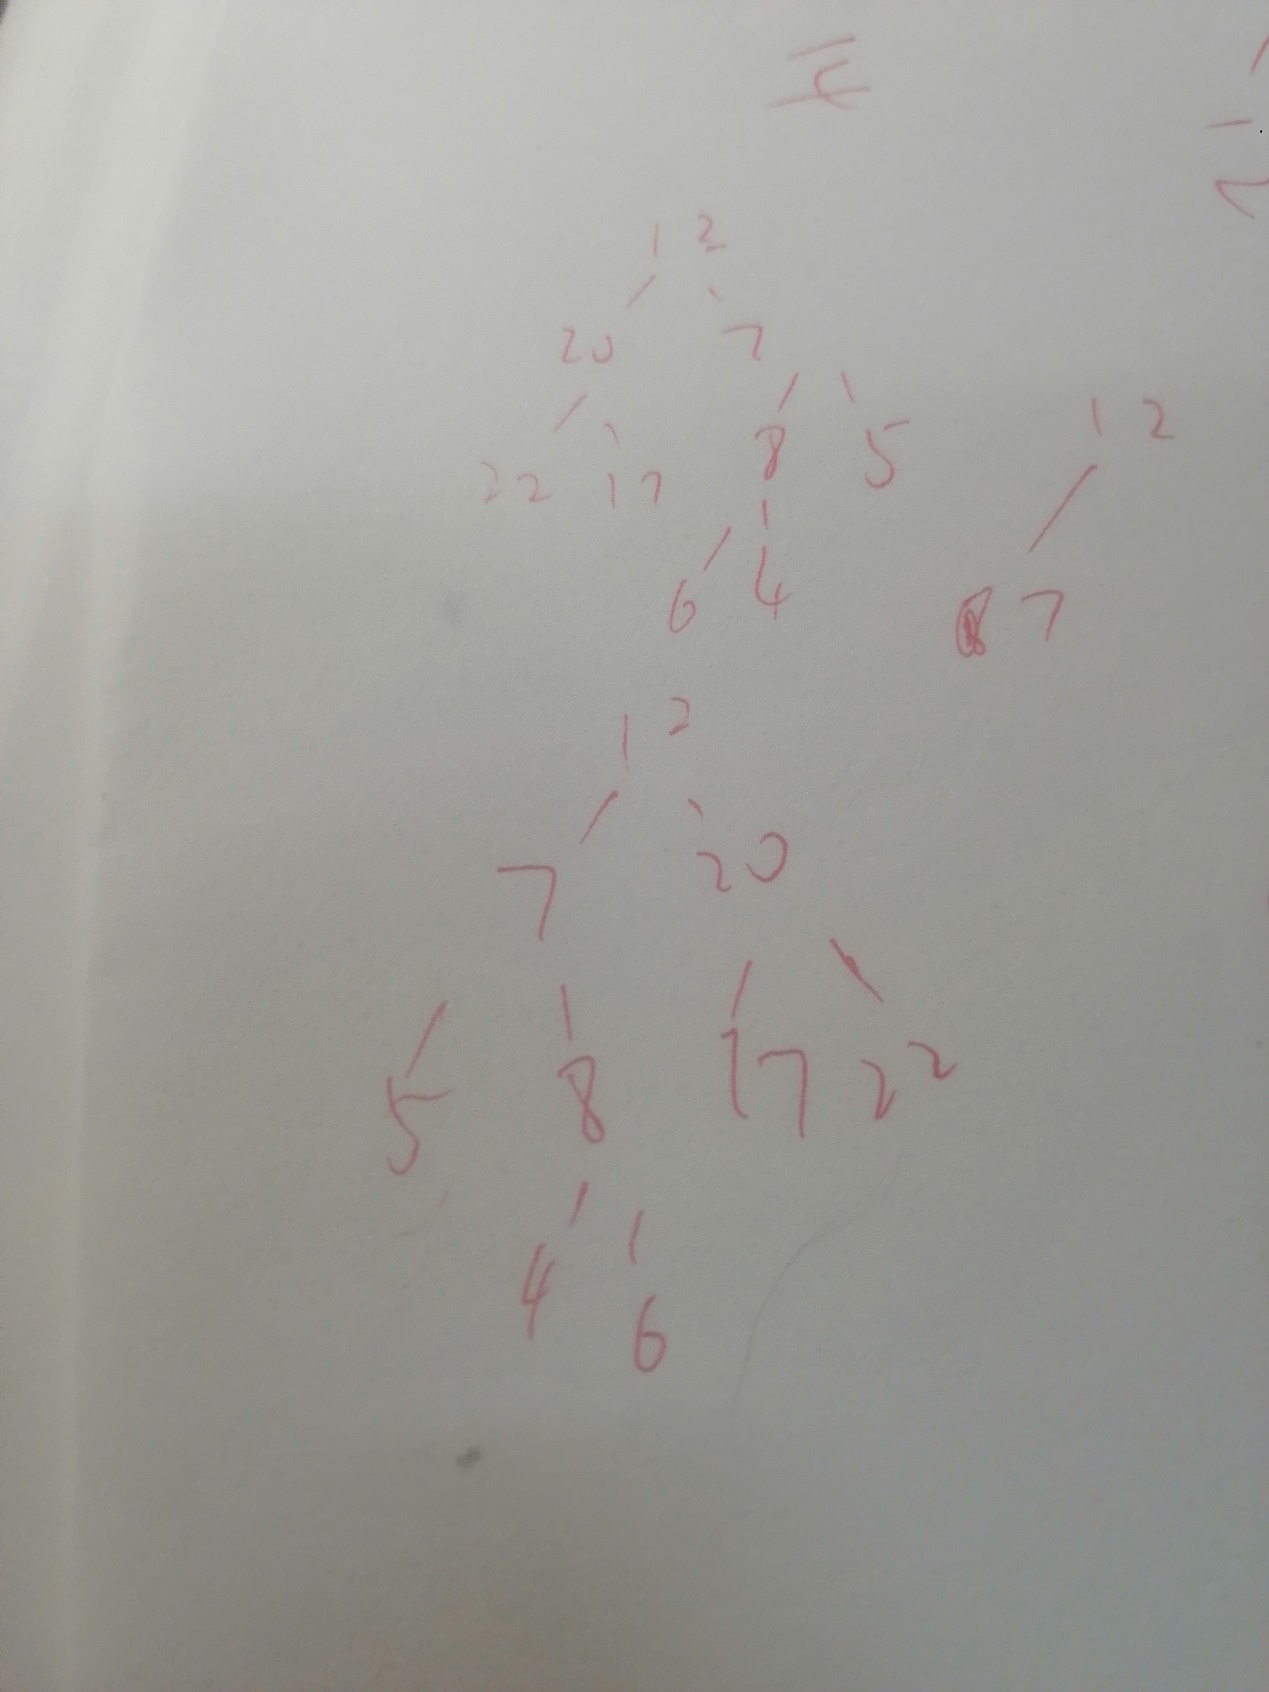 12
20 7
8 5
22 17
6 4
12
7
12
7 20
5 8 17 22
4 6